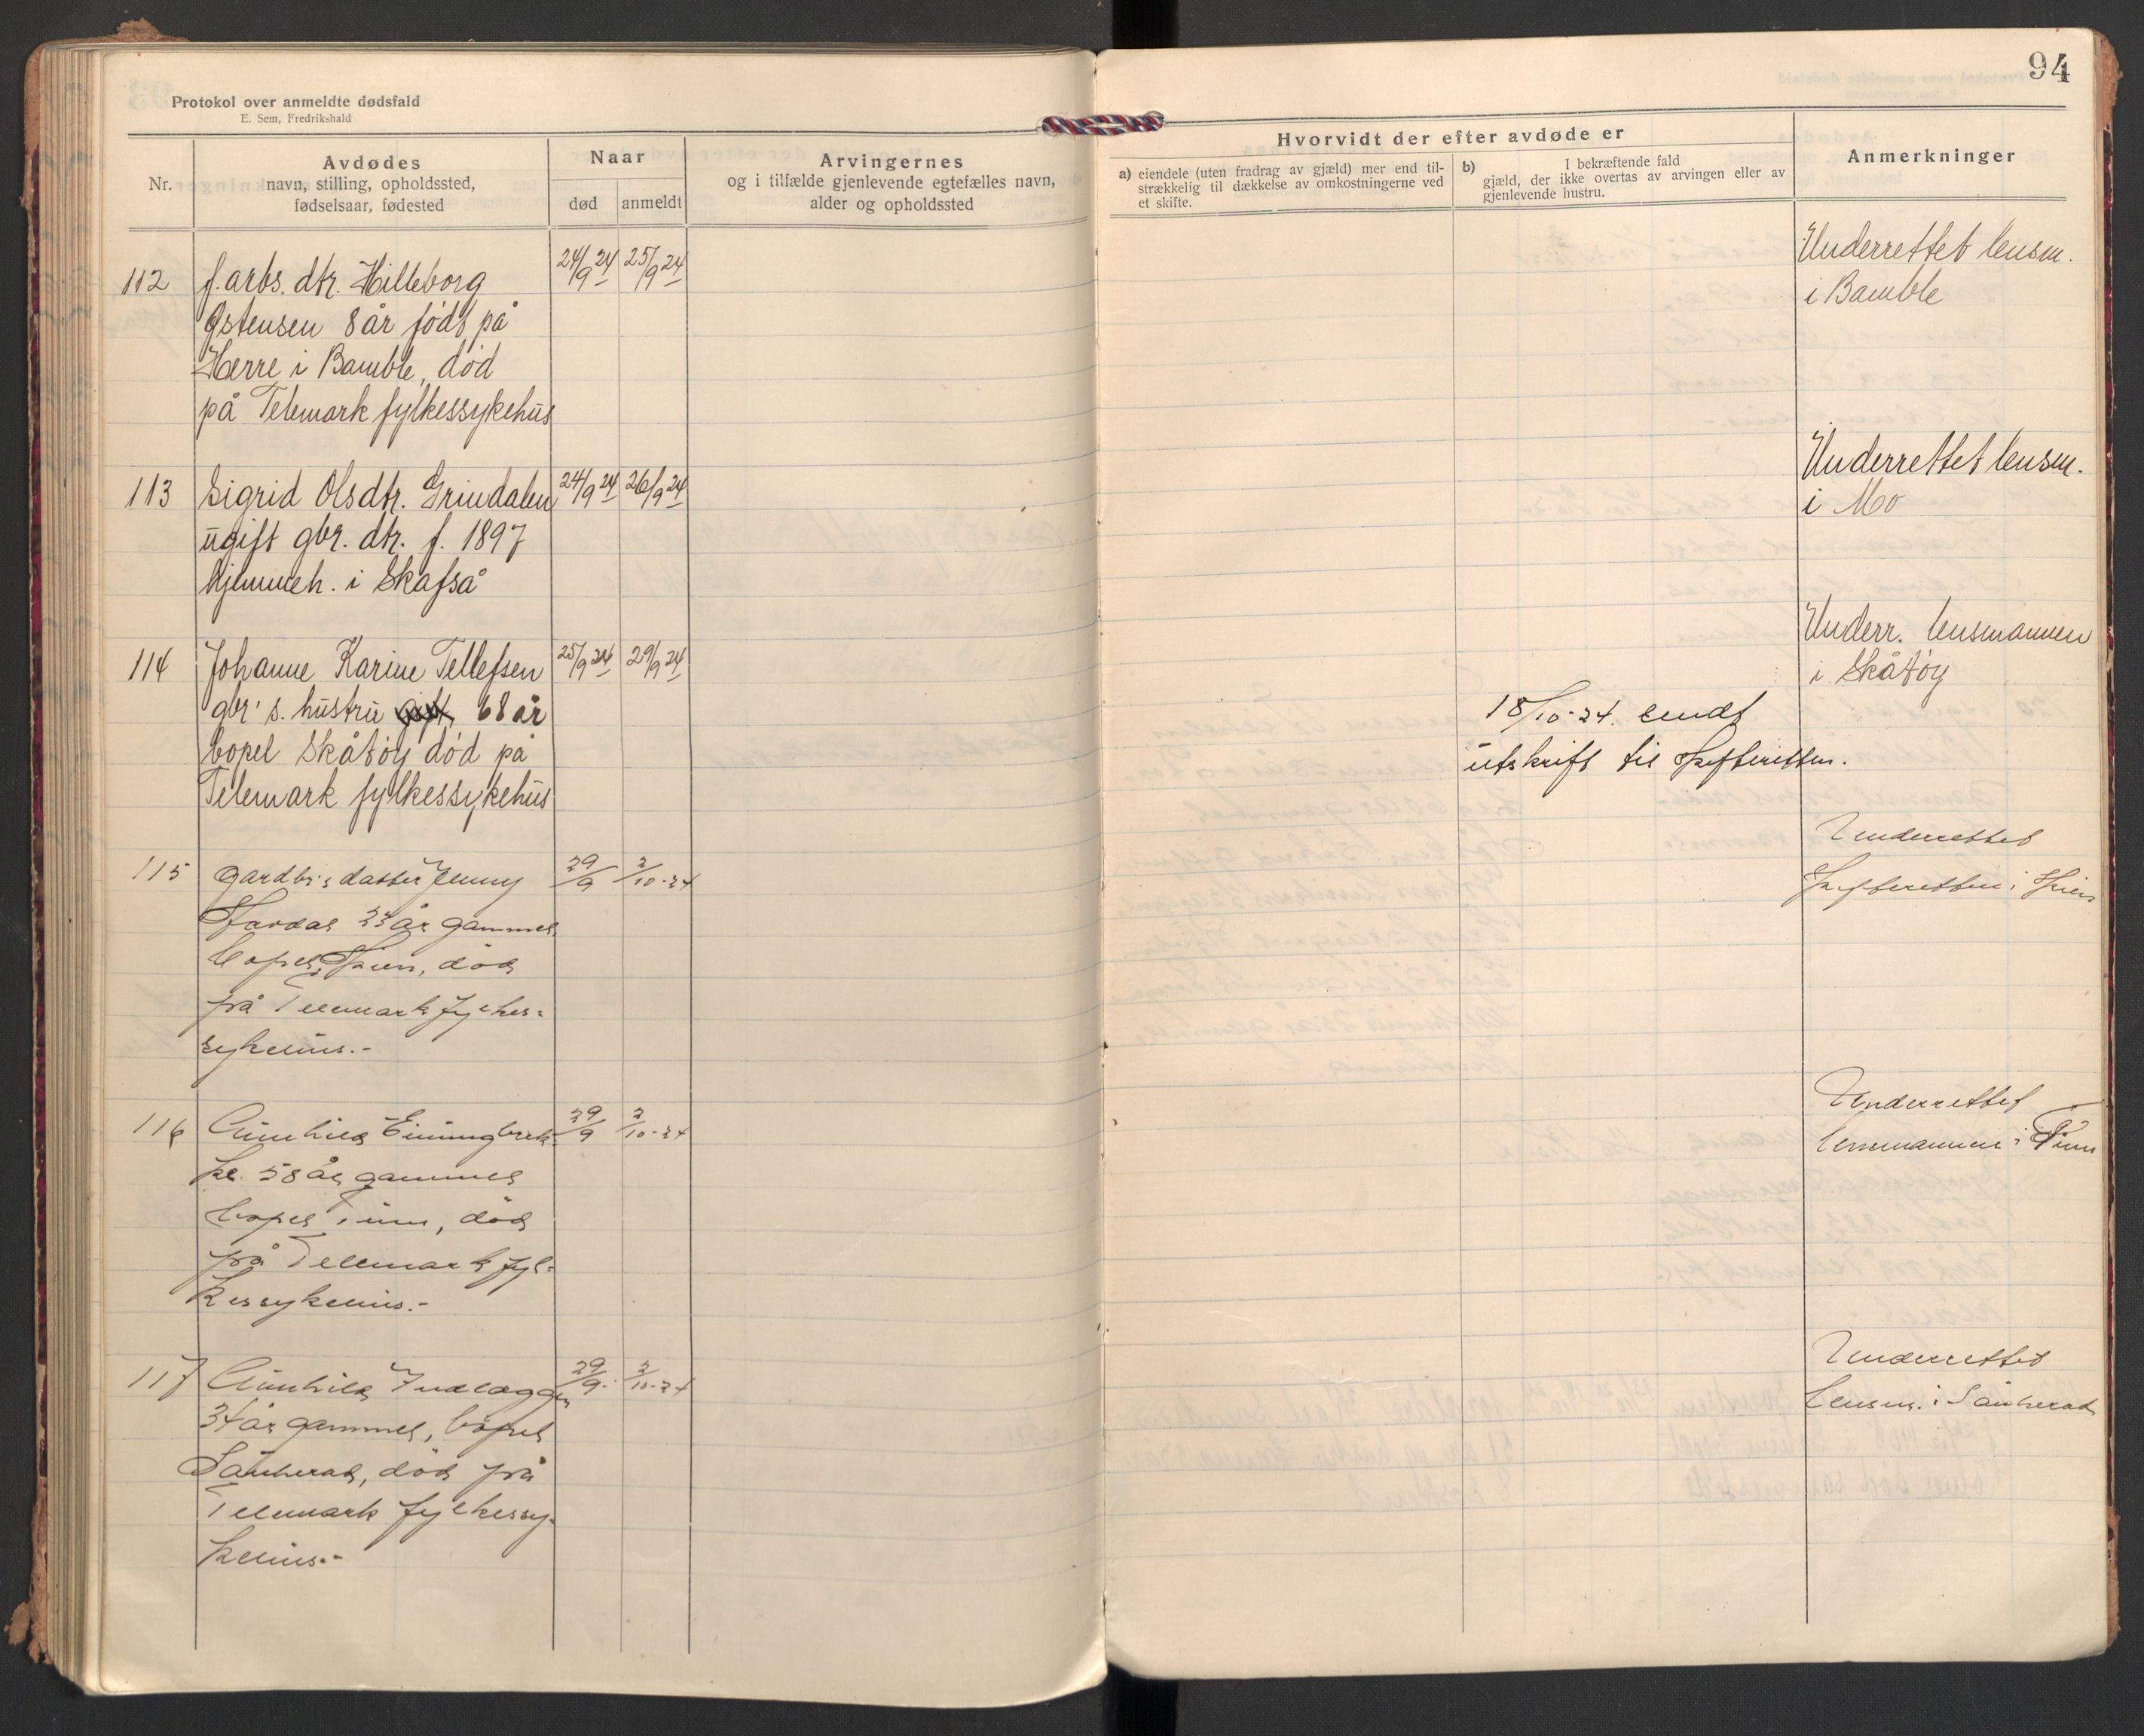 94
Protokol over anmeldte dødsfald
E. Sem, Fredrikshald
Nr.
Avdødes
navn, stilling, opholdssted,
fødselsaar, fødested
Naar
død
anmeldt
Arvingernes
og i tilfælde gjenlevende egtefælles navn,
alder og opholdssted
Hvorvidt der efter avdøde er
a) eiendele (uten fradrag av gjæld) mer end til-
strækkelig til dækkelse av omkostningerne ved
et skifte.
b) I bekræftende fald
gjæld, der ikke overtas av arvingen eller av
gjenlevende hustru.
Anmerkninger
112 f. arbs. dtr. Hilleborg 24/9 24 25/9 24 Underrettet lensm.
Østensen 8 år født på i Bamble
Herre i Bamble, død
på Telemark fylkessykehus
113 Sigrid Olsdtr. Grindalen 24/9 24 26/9 24 Underrettet lensm.
ugift gbr. dtr. f. 1897 i Mo
hjemmeh. i Skafså
114 Johanne Karine Tellefsen 25/9 24 29/9 24 Underr. lensmannen
gbr's. hustru gift, 68 år i Skåtøy
bopel Skåtøy død på
Telemark fylkessykehus
18/10-24. sendt
utskrift til Skifteretten.
115 Gardbr.s datter Jenny 29/9 2/10-24 Underrettet
år gammel Skifteretten i Skien
bopel Skien, død
på Telemark fylkes-
sykehus.-
116 Gunhild 29/9 2/10-24 Underrettet
58 år gammel lensmannen i Tinn
bopel Tinn, død
på Telemark fyl-
kessykehus.-
117 Gunhild 29/9- 2/10-24 Underrettet
34 år gammel, bopel lensm. i Sauherad
Sauherad, død på
Telemark fylkessy-
kehus.-